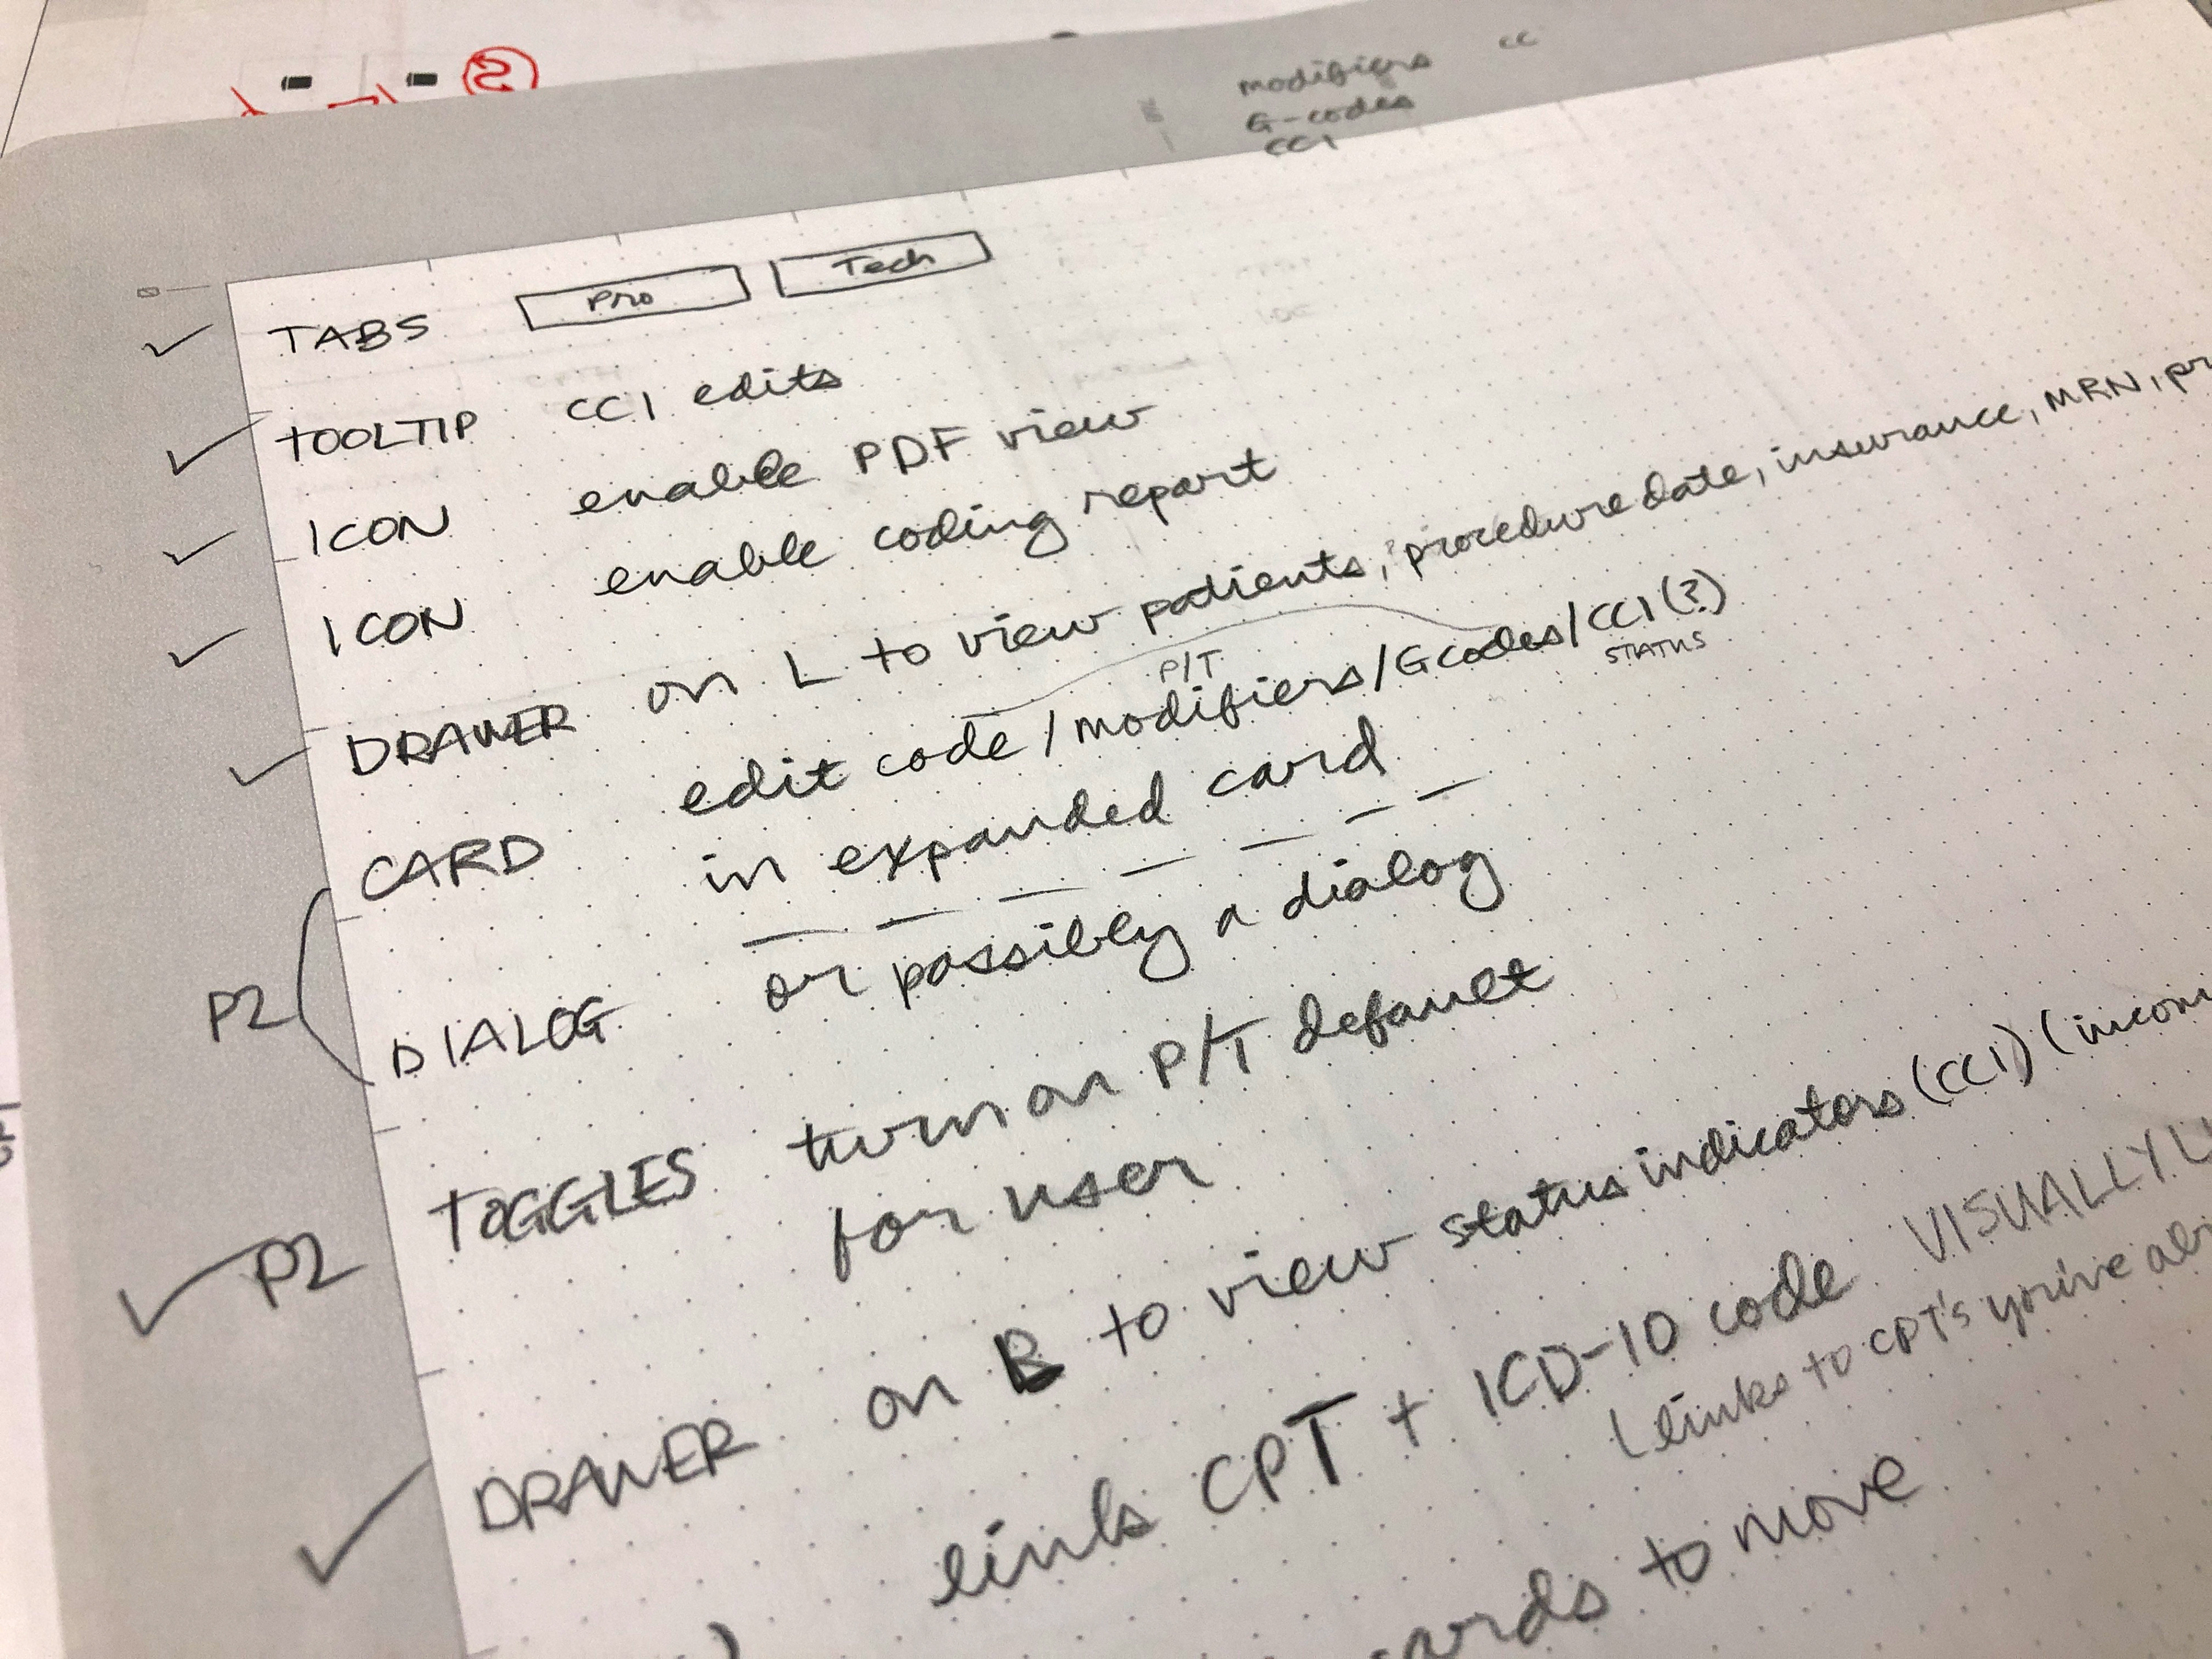 modifiers cc
G-codes
CCI
TABS Pro Tech
TOOLTIP CCI edits
ICON enable PDF view
ICON enable coding report
DRAWER on L to view patients, procedure date, insurance, MRN, pr
P/T
CARD edit code/modifiers/Gcodes/CCI(?)
STATUS
in expanded card
P2
DIALOG or possibly a dialog
P2 TOGGLES turn on P/T default
for user
DRAWER on B to view status indicators (CCI) (incom
links CPT + ICD-10 code VISUALLY L
(links to CPT's you've alr
cards to move